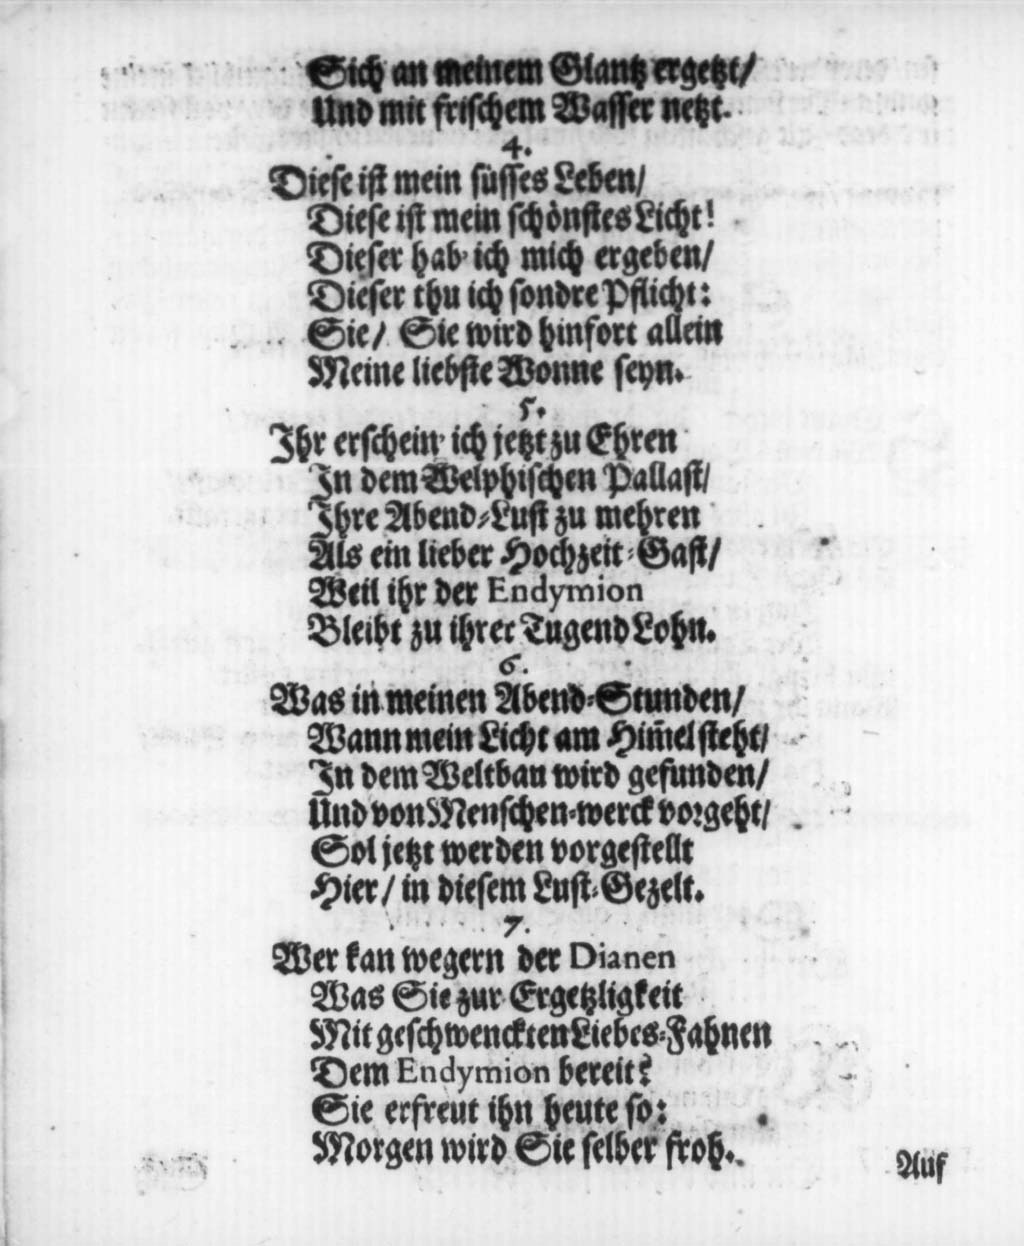 Sich an meinem Glantz ergetzt/
Und mit frischem Wasser netzt.
4.
Diese ist mein süsses Leben/
Diese ist mein schönstes Licht!
Dieser hab' ich mich ergeben/
Dieser thu ich sondre Pflicht:
Sie/ Sie wird hinfort allein
Meine liebste Wonne seyn.
5.
Ihr erschein' ich jetzt zu Ehren
In dem Welphischen Pallast/
Ihre Abend-Lust zu mehren
Als ein lieber Hochzeit-Gast/
Weil ihr der Endymion
Bleibt zu ihrer Tugend Lohn.
6.
Was in meinen Abend-Stunden/
Wann mein Licht am Him̃el steht/
In dem Weltbau wird gefunden/
Und von Menschen-werck vorgeht/
Sol jetzt werden vorgestellt
Hier/ in diesem Lust-Gezelt.
7.
Wer kan wegern der Dianen
Was Sie zur Ergetzligkeit
Mit geschwenckten Liebes-Fahnen
Dem Endymion bereit?
Sie erfreut ihn heute so:
Morgen wird Sie selber froh.
Auf